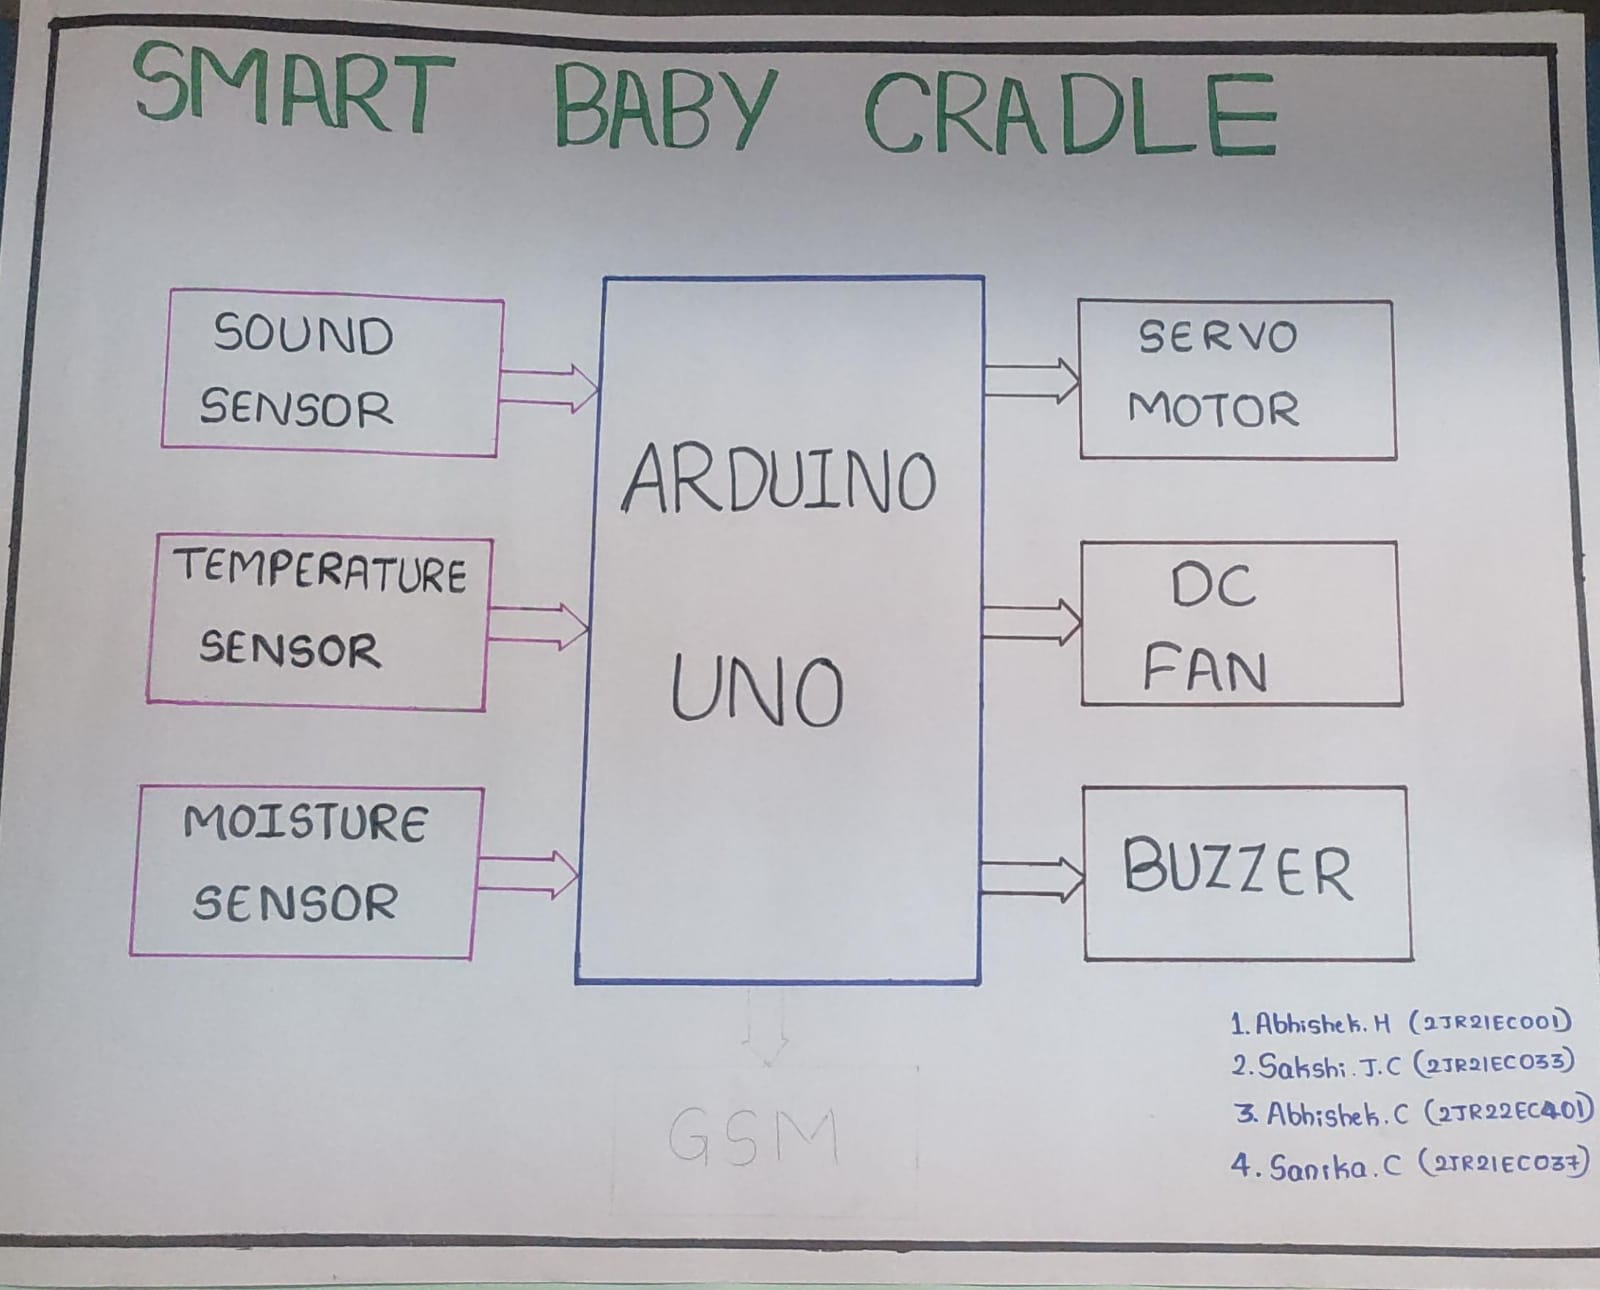 SMART BABY CRADLE
SOUND
SENSOR
TEMPERATURE
SENSOR
MOISTURE
SENSOR
ARDUINO
UNO
SERVO
MOTOR
DC
FAN
BUZZER
GSM
1. Abhishek. H (2JR21EC001)
2. Sakshi. J.C (2JR21EC033)
3. Abhishek. C (2JR22EC401)
4. Sanika. C (2JR21EC037)